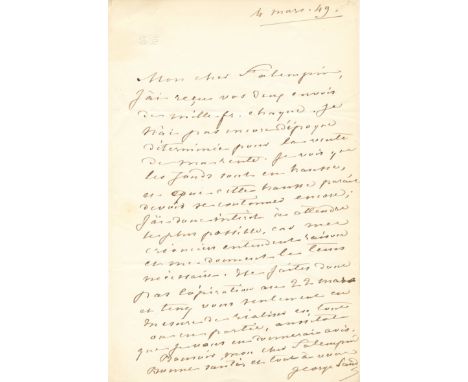 4 mars. 49.
Mon cher Falempin,
J'ai reçu vos deux envois
de mille fr. chaque. Je
n'ai pas encore d'époque
déterminée pour la vente
de ma rente. Je vois que
les fonds sont en hausse,
et que cette hausse paraît
devoir se soutenir encore,
j'ai donc intérêt à attendre
le plus possible, car mes
créanciers entendent raison
et me donnent le tems
nécessaire. Ne faites donc
pas l'opération au 22 mars
et tenez vous seulement en
mesure de réaliser en tout
ou en partie, aussitôt
que je vous en donnerai avis.
Bonsoir mon cher Falempin
Bonne santé et tout à vous
George Sand